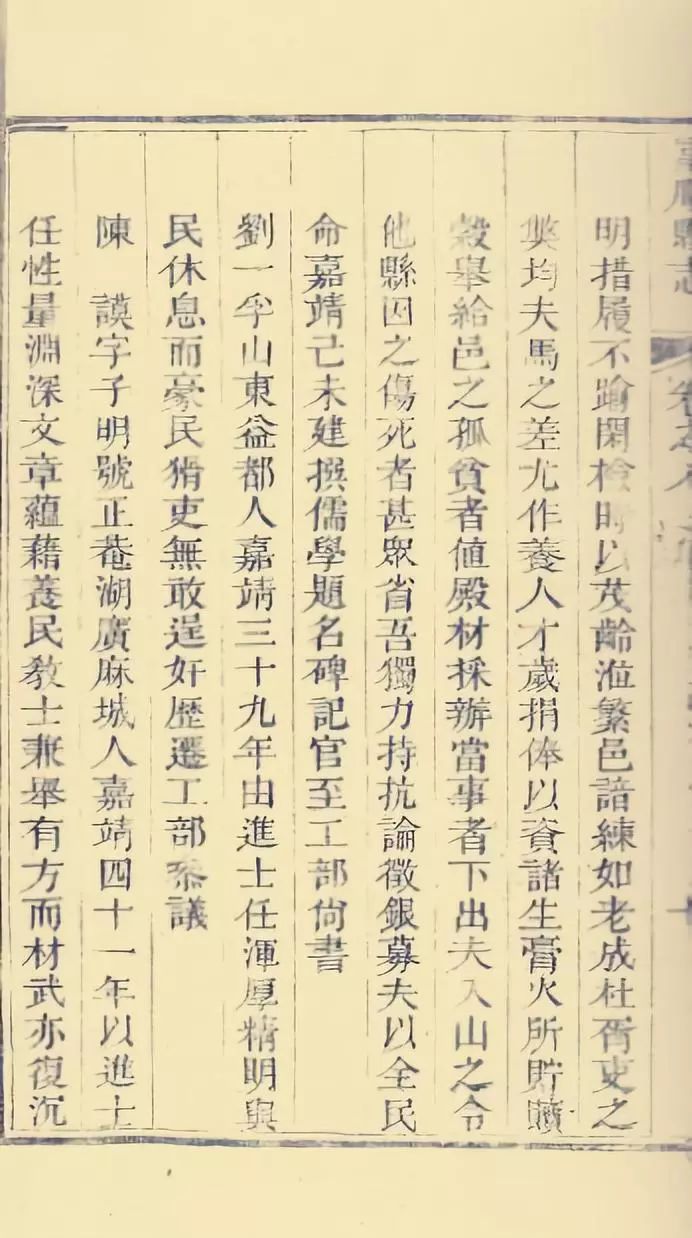 縣志
明措履不踰閑檢時以茂齡涖繁邑諳練如老成杜胥吏之
獘均夫馬之差尤作養人才歲捐俸以資諸生膏火所貯贖
穀舉給邑之孤貧者値殿材採辦當事者下出夫入山之令
他縣因之傷死者甚眾省吾獨力持抗論徵銀募夫以全民
命嘉靖己未建撰儒學題名碑記官至工部尙書
劉一孚山東益都人嘉靖三十九年由進士任渾厚精明與
民休息而豪民猾吏無敢逞奸歷遷工部叅議
陳　謨字子明號正菴湖廣麻城人嘉靖四十一年以進士
任性量淵深文章蘊藉養民敎士兼舉有方而材武亦復沉